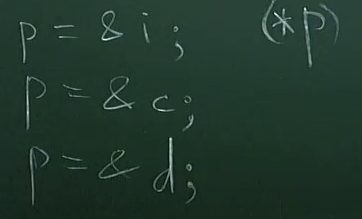 p = & i ; (*p)
p = & c;
p = & d;